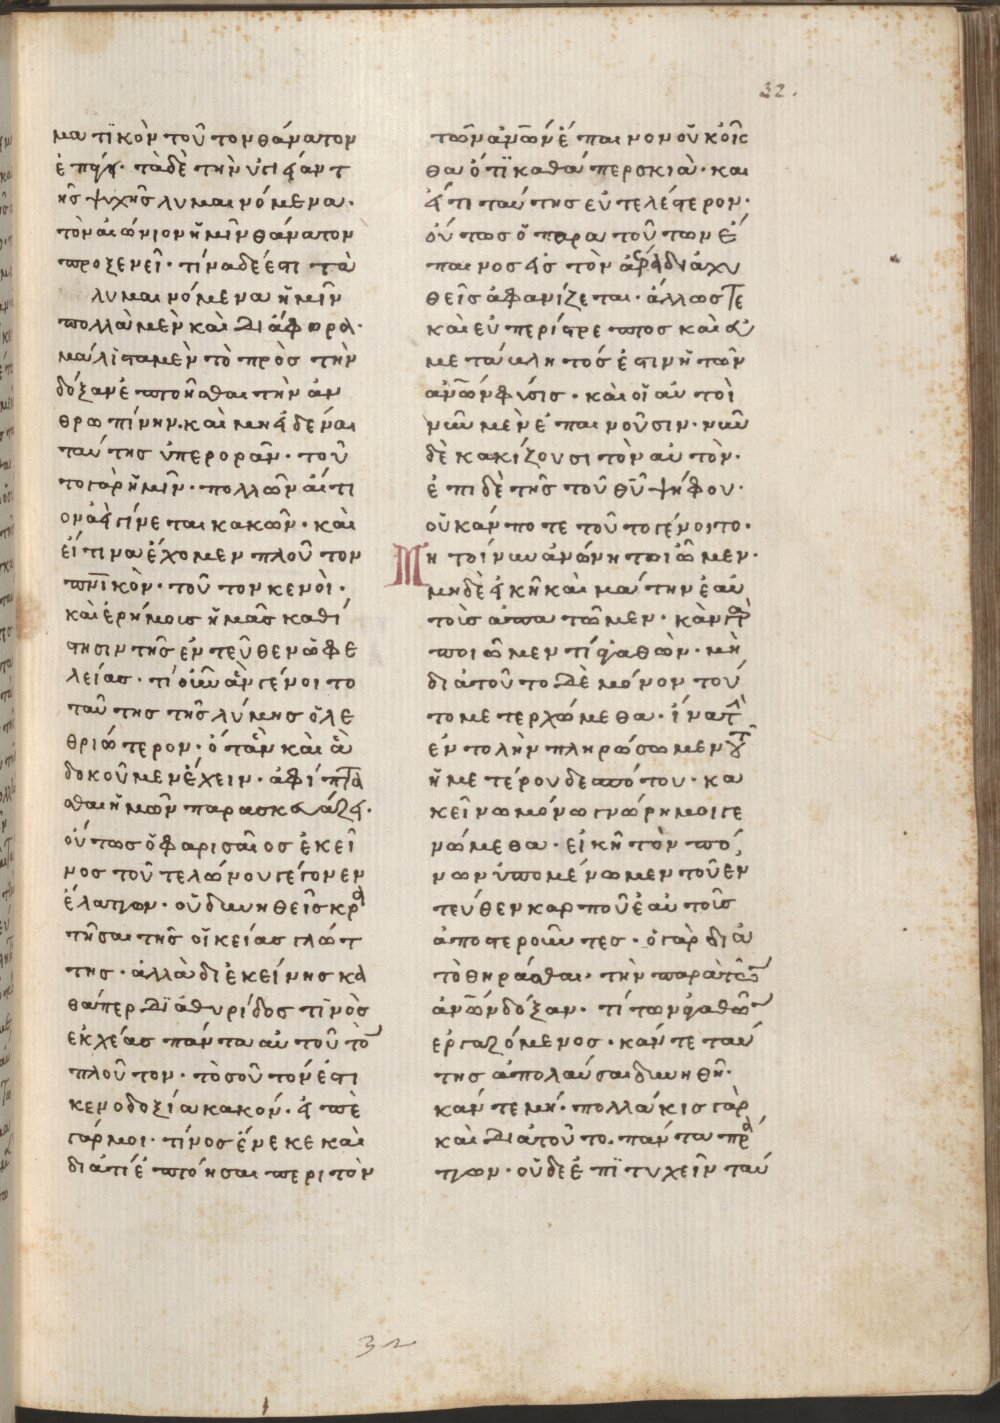 32.
ματϊκὸν τοῦτον θάνατον
ἐπάγει· τὰ δὲ τὴν ὑγείαν τ
ῆς ψυχῆς λυμαινόμενα·
τὸν αἰώνιον ἡμῖν θάνατον
προξενεῖ· τίνα δέ ἐστι τὰ
λυμαινόμενα ἡμῖν
πολλὰ μὲν καὶ διάφορα·
μάλιστα μὲν τὸ πρὸς τὴν
δόξαν ἐπτοῆσθαι τὴν ἀν
θρωπίνην· καὶ μὴ εἰδέναι
ταύτης ὑπερορᾶν· τοῦ
το γὰρ ἡμῖν· πολλῶν αἴτι
ον ἀεὶ γίνεται κακῶν· καὶ
εἴ τινα ἔχομεν πλοῦτον
πνικὸν· τοῦτον κενοὶ·
καὶ ἐρήμοις ἡμᾶς καθί
στησιν τῆς ἐντεῦθεν ὠφε
λείας· τί οὖν ἂν γένοιτο
ταύτης τῆς λύμης ὀλε
θριώτερον· ὅταν καὶ ἃ
δοκοῦμεν ἔχειν· ἀφίπτα
σθαι ἡμῶν παρασκευάζει·
οὕτως ὁ φαρισαῖος ἐκεῖ
νος τοῦ τελώνου γέγονεν
ἐλάττων· οὐ δυνηθεὶς κρα
τῆσαι τῆς οἰκείας γλώτ
της· ἀλλὰ δι ἐκείνης κα
θάπερ δϊὰ θυρίδος τινὸς
ἐκχέας πάντα αὐτοῦ τὸν
πλοῦτον· τὸσοῦτόν ἐστι
κενοδοξία κακόν· εἰπὲ
γάρ μοι· τίνος ἕνεκε καὶ
διὰ τί ἐπτόησαι περι τὸν
τῶν ἀνων ἔπαινον οὐκ οἶς
θα ὅτϊ καθάπερ σκιὰ· και
εἴ τι ταύτης εὐτελέστερον·
οὕτως ὁ παρα τούτων ἔ
παινος εἰς τὸν ἀέρα διαχυ
θεὶς ἀφανίζεται· ἄλλως τε
καὶ εὐπερίτρεπτος καὶ εὐ
μετάβλητός ἐστιν ἡ τῶν
ἀνων φύσις· καὶ οἱ αὐτοὶ
νῦν μὲν ἐπαινοῦσιν· νῦν
δὲ κακίζουσι τὸν αὐτὸν·
ἐπι δὲ τῆς τοῦ θυ ψήφου·
οὐκ ἄν ποτε τοῦτο γένοιτο·
Μη τοίνυν ἀνόνητα ποιῶμεν·
μηδὲ εἰκῆ καὶ μάτην ἑαυ
τοὺς ἀπατῶμεν· κὰν γὰρ
ποιῶμεν τί ἀγαθὸν· μὴ
διὰ τοῦτο δὲ μόνον τοῦ
το μετερχώμεθα· ἵνα τὴν
ἐντολὴν πληρώσωμεν τοῦ
ἡμετέρου δεσπότου· κα
κείνω μόνω γνώρημοι γε
νώμεθα· εἰκῆ τὸν πό
νον ὑπομένωμεν τοῦ ἐν
τεύθεν καρποῦ ἑαυτοῖς
ἀποστεροῦντες· ὁ γὰρ διὰ
τὸ θηράσθαι· τὴν παρὰ τῶν
ἀνων δόξαν· τί τῶν ἀγαθῶν
ἐργαζόμενος· κάν τε ταύ
της ἀπολαύσαι δυνηθῆ·
κάν τε μή· πολλάκις γὰρ
καὶ διὰ τοῦτο· πάντα πρά
ττων· οὐδε ἐπϊτυχεῖν ταύ
32